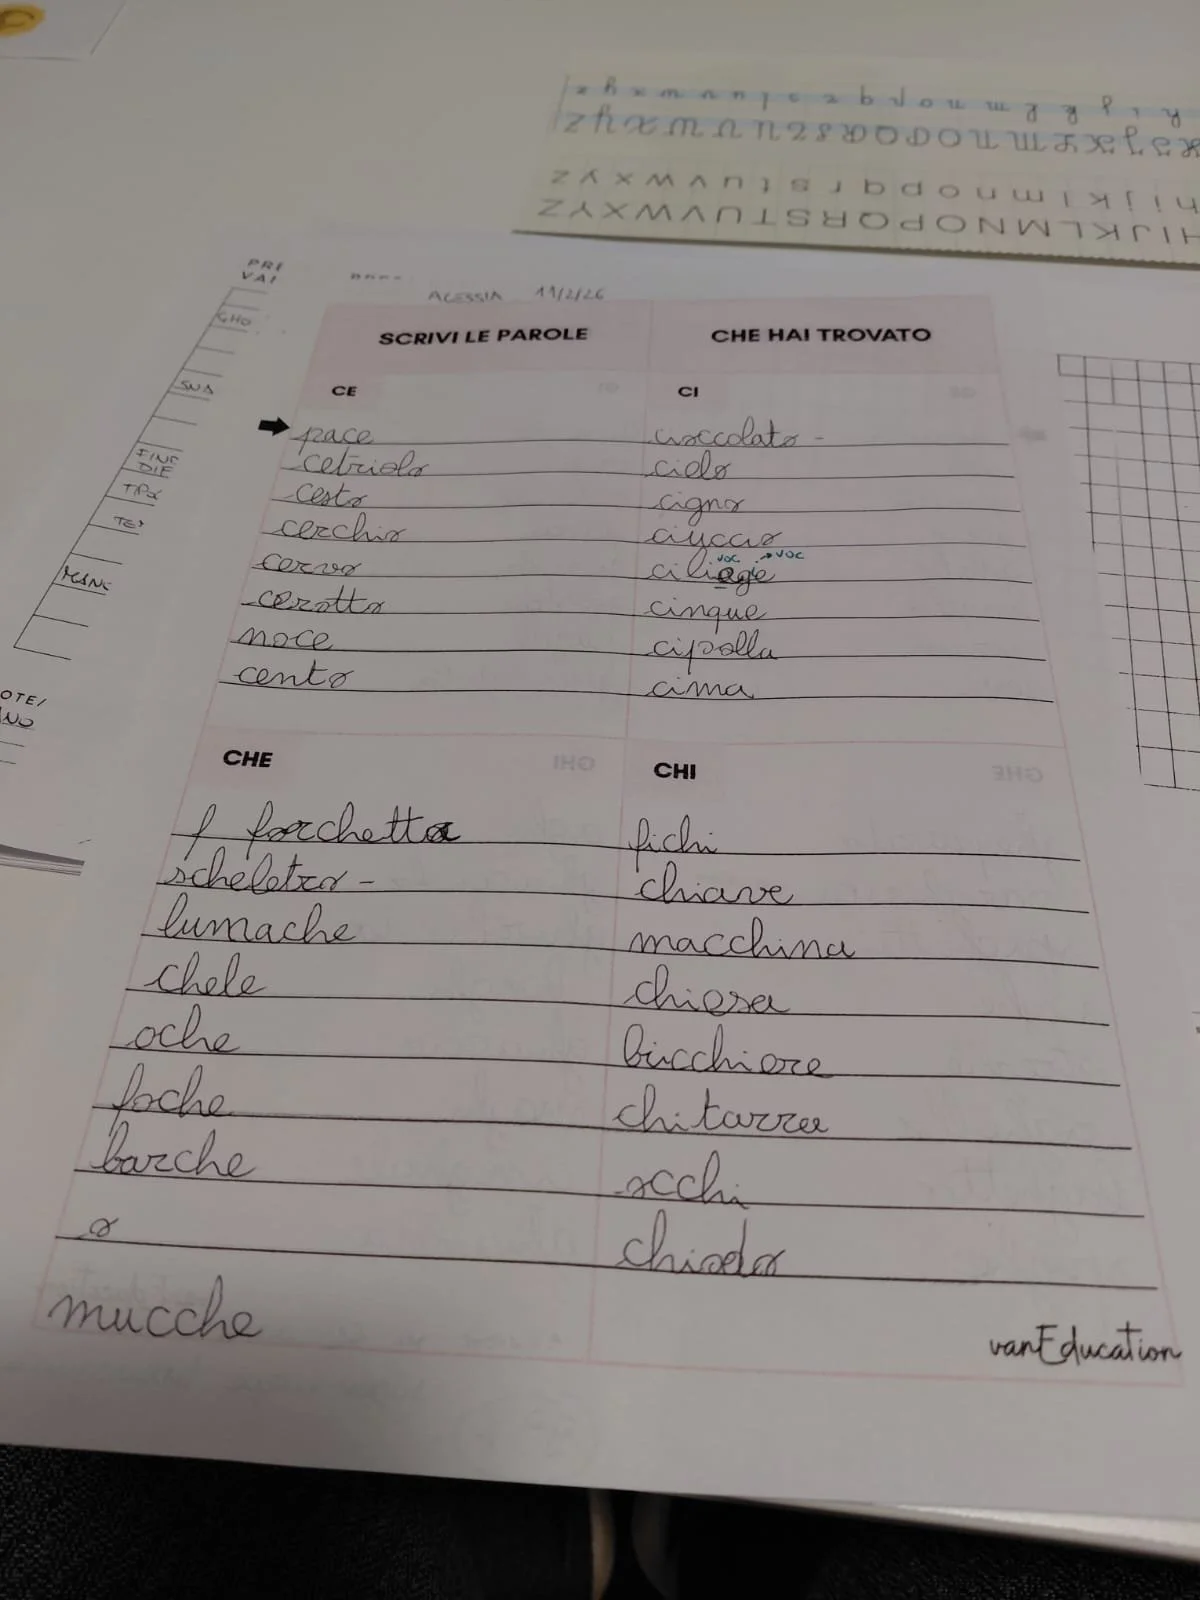 ALESSIA 11/2/26
SCRIVI LE PAROLE CHE HAI TROVATO
CE
pace
cetriolo
cesto
cerchio
cervo
cerotto
noce
cento
CI
cioccolato -
cielo
cigno
ciuccio
voc → voc
ciliegie
cinque
cipolla
cima
CHE
f forchetta
scheletro -
lumache
chele
oche
foche
barche
o
mucche
CHI
fichi
chiave
macchina
chiesa
bicchiere
chitarra
occhi
chiodo
vanEducation
PRI
VAI
GHO
FINE
DIE
HIJKLMNOPQRSTUVWXYZ
hijklmnopqrstuvwxyz